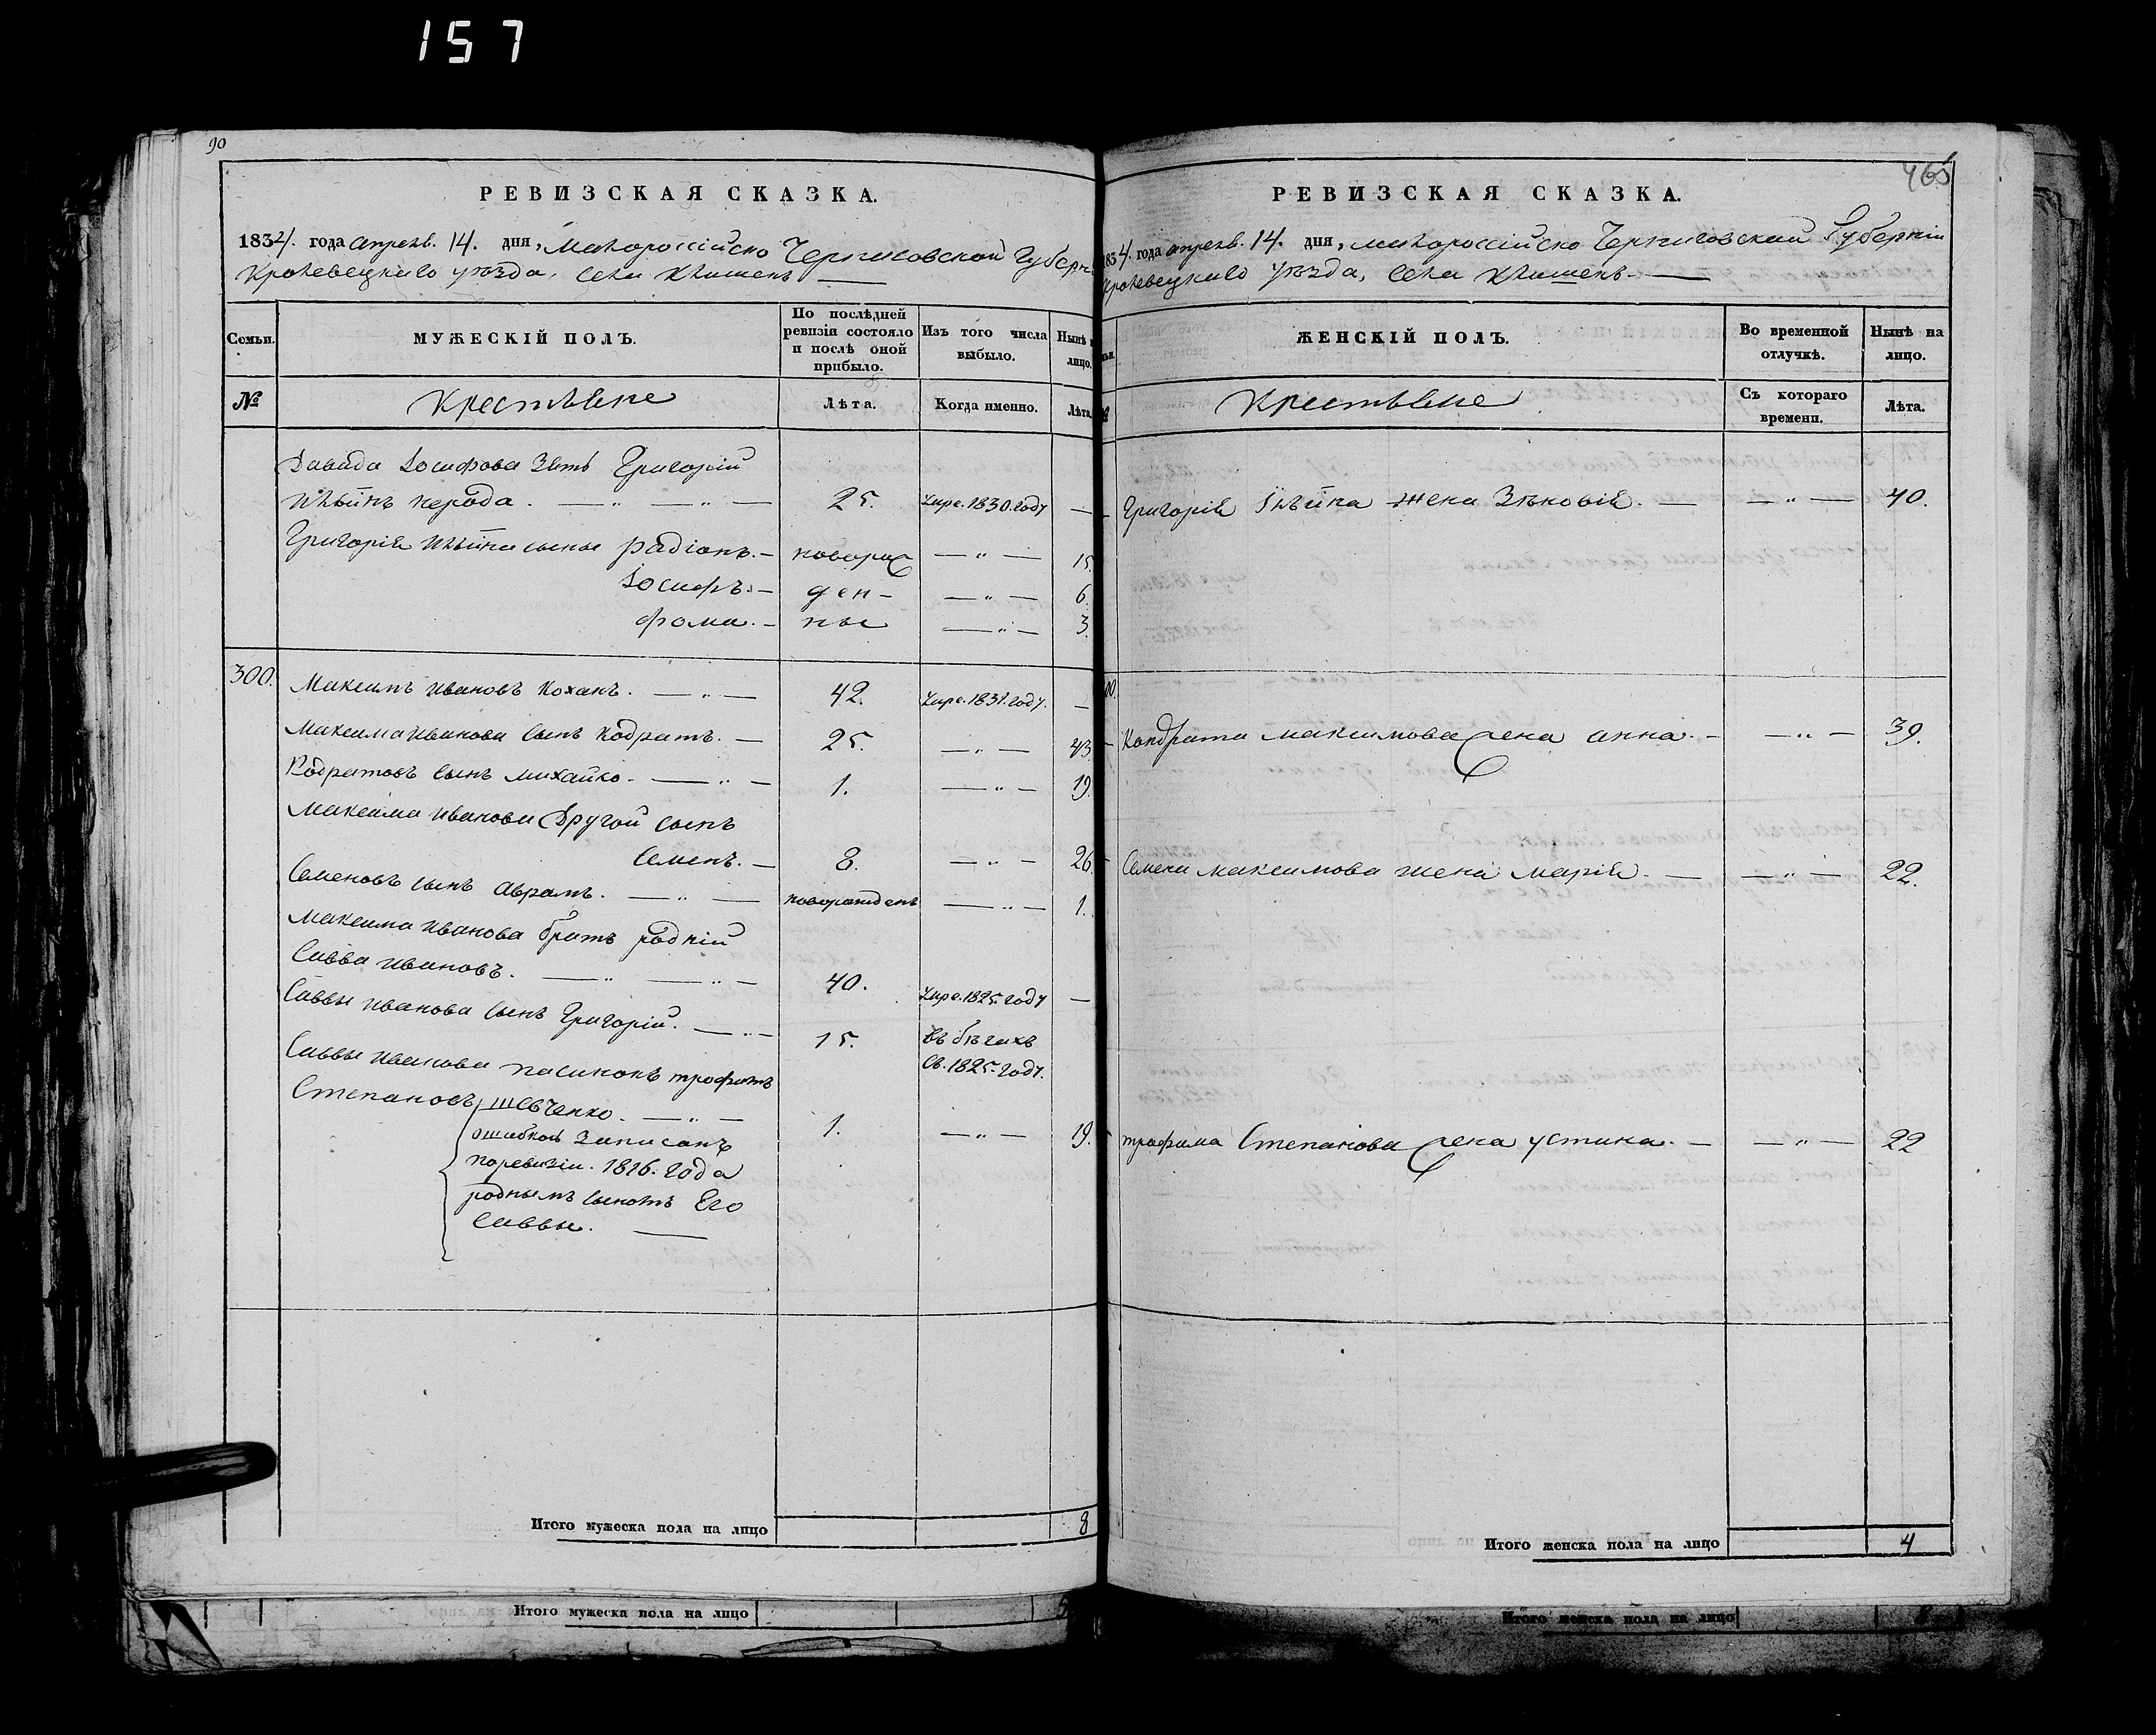 157
90
РЕВИЗСКАЯ СКАЗКА.
1834. года апрелѣ. 14. дня, Малороссійско Черниговской Губерн
Кролевецкого уѣзда, села Клишекъ —
Семьи.
МУЖЕСКІЙ ПОЛЪ.
По послѣдней ревизіи состояло и послѣ оной прибыло.
Изъ того числа выбыло.
Нынѣ лицо.
№
Крестьяне
Лѣта.
Когда именно.
Лѣта
Давида Іосифова Зять Григорій
Ильинъ — " — " — 25. Умре. 1830. году —
Григорія Ильина сыны Радіонъ. — новорож — " — 15.
Іосифъ. — ден — — " — 6.
Фома. — ные — " — 3.
300. Максимъ Ивановъ Коханъ. — " — 42. Умре. 1831. году. —
Максима Иванова сынъ Кодратъ. — 25. — " — 43
Кодратовъ сынъ Михайло. — " — 1. — " — 19.
Максима Иванова Другой сынъ
Семенъ. — 8. — " — 26
Семеновъ сынъ Аврамъ. — " — новорожденъ — " — 1.
Максима Иванова братъ родній
Савва Ивановъ. — " — " — 40. Умре. 1825. году —
Саввы Иванова сынъ Григорій. — " — 15. Въ бѣгахъ
Съ. 1825. году.
Саввы Иванова пасинокъ Трофимъ
Степановъ Шевченко. — " — 1. — " — 19.
ошибкою записанъ
поревизіи. 1816. года
роднымъ сыномъ Его
Саввы. —
Итого мужеска пола на лицо 8
Итого мужеска пола на лицо 5
465
РЕВИЗСКАЯ СКАЗКА.
1834. года апрелѣ. 14. дня, Малороссійско Черниговской Губерніи
Кролевецкого уѣзда, села Клишекъ. —
ЖЕНСКІЙ ПОЛЪ.
Во временной отлучкѣ.
Нынѣ на лицо.
Крестьяне
Съ котораго времени.
Лѣта.
Григорія Ильина жена Зѣновія. — — " — 40.
Кондрата Максимова жена Анна. — — " — 39.
Семена Максимова жена Марія. — — " — 22.
Трофима Степанова жена Устина. — — " — 22
Итого женска пола на лицо 4
Итого женска пола на лицо 8